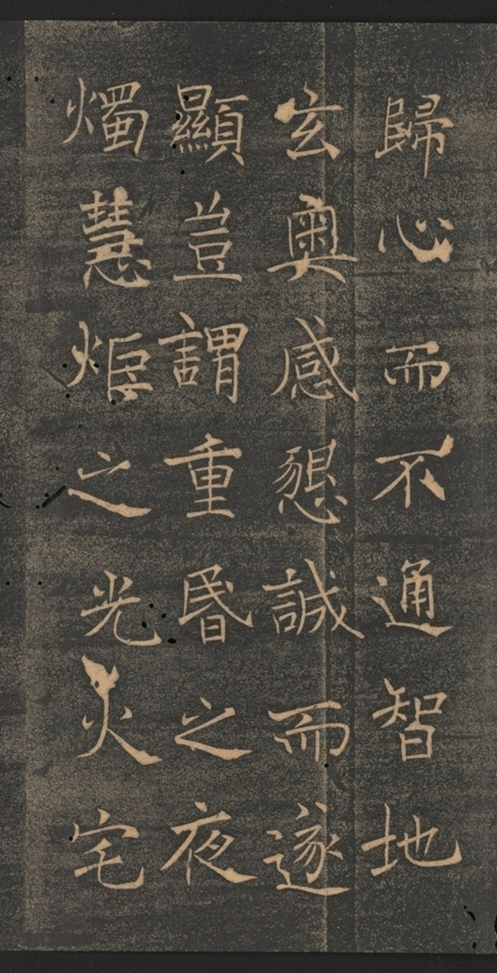 歸心而不通智地
玄奧感懇誠而遂
顯豈謂重昬之夜
燭慧炬之光火宅